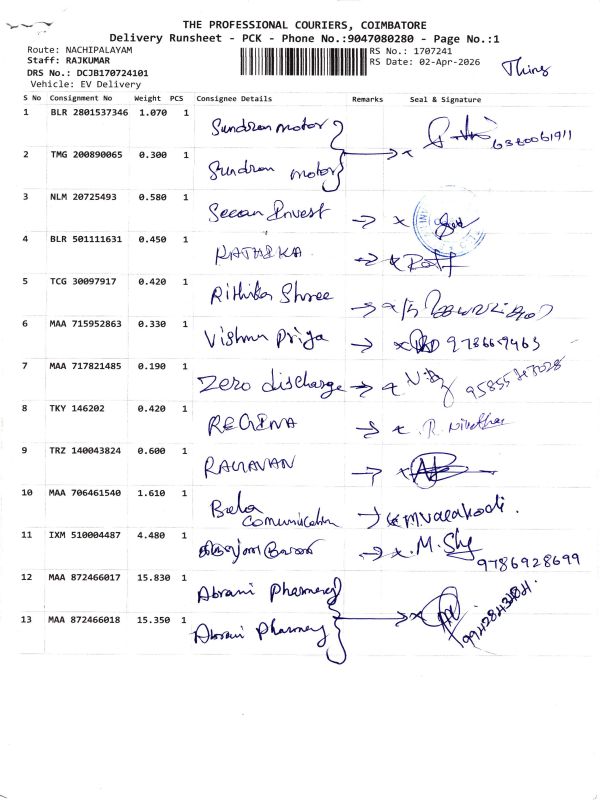 THE PROFESSIONAL COURIERS, COIMBATORE
Delivery Runsheet - PCK - Phone No.:9047080280 - Page No.:1
Route: NACHIPALAYAM
RS No.: 1707241
Staff: RAJKUMAR
RS Date: 02-Apr-2026
DRS No.: DCJB170724101
Vehicle: EV Delivery
S No Consignment No Weight PCS Consignee Details Remarks Seal & Signature
1 BLR 2801537346 1.070 1 Sundram motor
6380061911
2 TMG 200890065 0.300 1 Sundram motor
3 NLM 20725493 0.580 1 Seean Invest
4 BLR 501111631 0.450 1 RATHIKA
5 TCG 30097917 0.420 1 Rithika Shree
6 MAA 715952863 0.330 1 Vishnu Priya 9786659463
7 MAA 717821485 0.190 1 Zero discharge
8 TKY 146202 0.420 1 REGINA R. Nivetha
9 TRZ 140043824 0.600 1 RAGAVAN
10 MAA 706461540 1.610 1 Bala
Comunication
11 IXM 510004487 4.480 1 M. Shy
9786928699
12 MAA 872466017 15.830 1 Abrani Pharmacy
13 MAA 872466018 15.350 1 Abrani Pharmacy